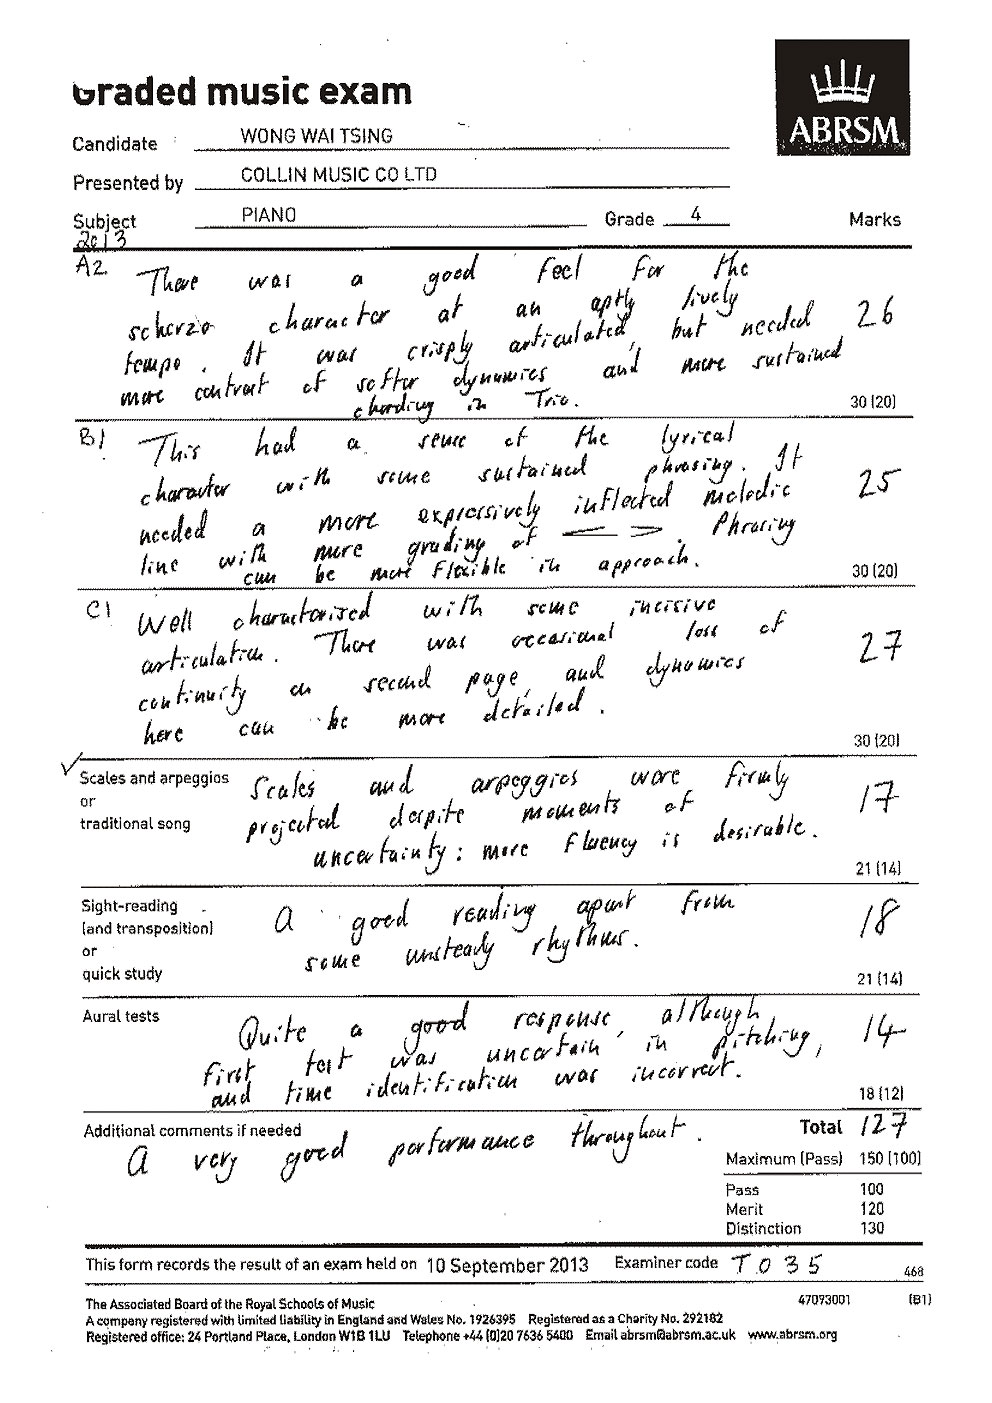 Graded music exam
ABRSM
Candidate WONG WAI TSING
Presented by COLLIN MUSIC CO LTD
Subject PIANO Grade 4 Marks
2013
A2 There was a good feel for the
scherzo character at an aptly lively
tempo. It was crisply articulated, but needed 26
more contrast of softer dynamics and more sustained
chording in Trio.
30 (20)
B1 This had a sense of the lyrical
character with some sustained phrasing. It
needed a more expressively inflected melodic 25
line with more grading of < >. Phrasing
can be more flexible in approach.
30 (20)
C1 Well characterised with some incisive
articulation. There was occasional loss of
continuity on second page, and dynamics 27
here can be more detailed.
30 (20)
✓
Scales and arpeggios
or
traditional song
Scales and arpeggios were firmly
projected despite moments of 17
uncertainty: more fluency is desirable.
21 (14)
Sight-reading
(and transposition)
or
quick study
A good reading apart from 18
some unsteady rhythms.
21 (14)
Aural tests
Quite a good response, although
first test was uncertain in pitching, 14
and time identification was incorrect.
18 (12)
Additional comments if needed
A very good performance throughout.
Total 127
Maximum (Pass) 150 (100)
Pass 100
Merit 120
Distinction 130
This form records the result of an exam held on 10 September 2013 Examiner code T 0 3 5
468
47093001 (B1)
The Associated Board of the Royal Schools of Music
A company registered with limited liability in England and Wales No. 1926395 Registered as a Charity No. 292182
Registered office: 24 Portland Place, London W1B 1LU Telephone +44 (0)20 7636 5400 Email abrsm@abrsm.ac.uk www.abrsm.org